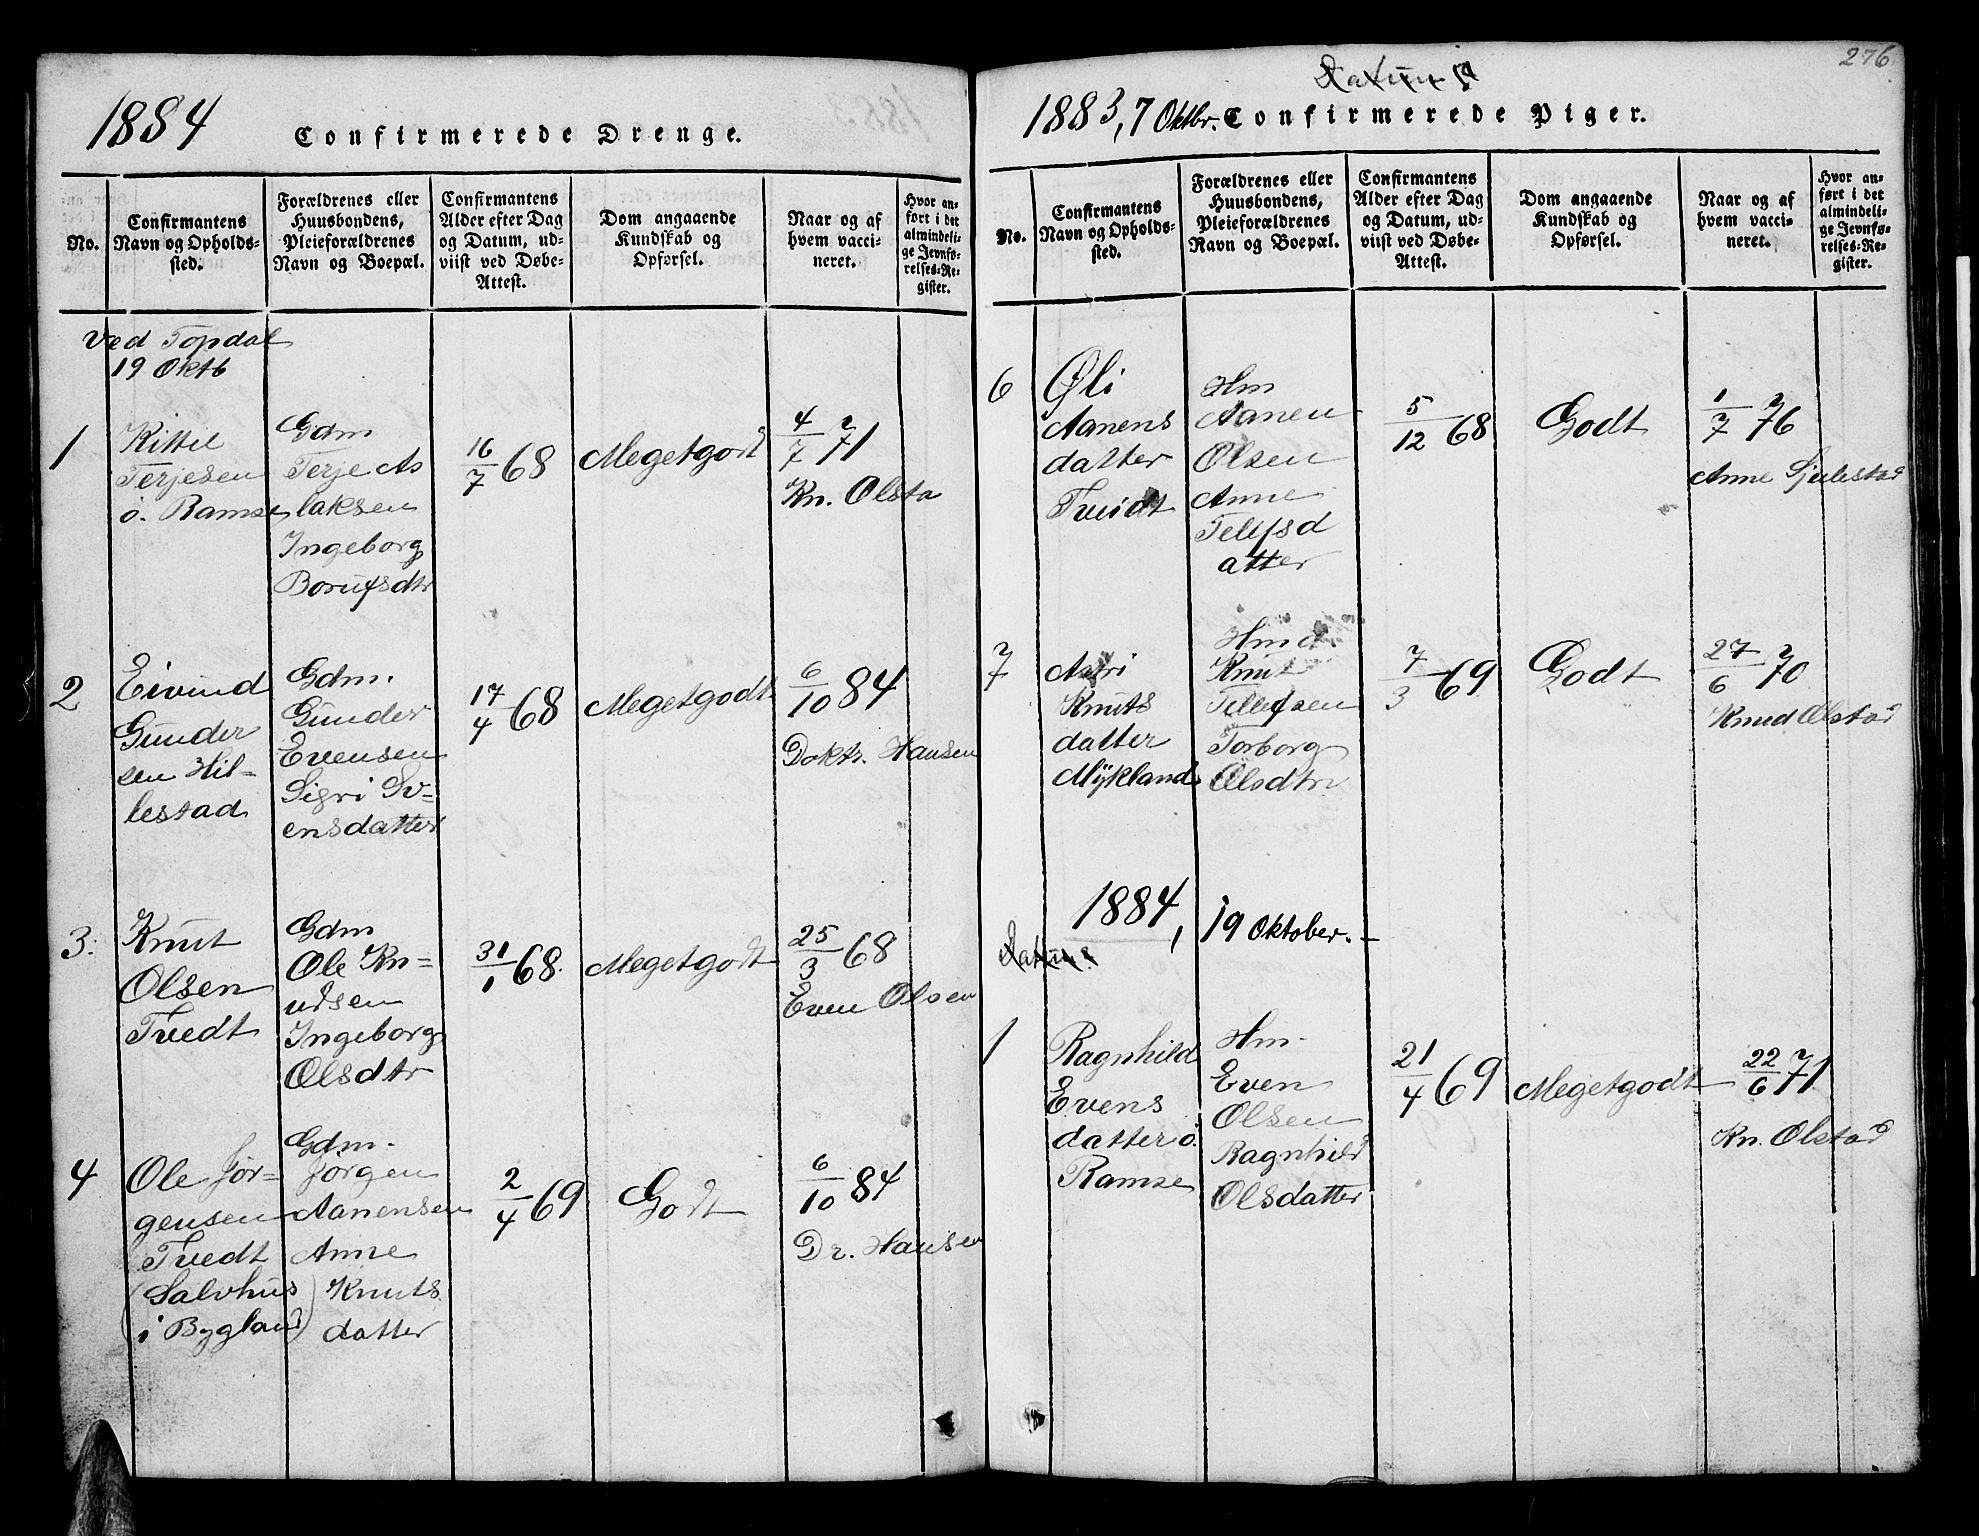 1884
Confirmerede Drenge.
No.
Confirmantens
Navn og Opholds-
sted.
Forældrenes eller
Huusbondens,
Pleieforældrenes
Navn og Boepæl.
Confirmantens
Alder efter Dag
og Datum, ud-
viist ved Døbe-
Attest.
Dom angaaende
Kundskab og
Opførsel.
Naar og af
hvem vacci-
neret.
Hvor an-
ført i det
almindeli-
ge Jevnfø-
relses-Re-
gister.
Ved Topdal
19 Oktb
1
Kittil
Terjesen
ö. Ramse
Gdm
Terje As
laksen
Ingeborg
Borufsdtr
16/7 68
Megetgodt
4/7 71
Kn. Olsta
2
Eivind
Gunder
sen Hil-
lestad
Gdm.
Gunder
Evensen
Sigri Sv-
ensdatter
17/4 68
Megetgodt
6/10 84
Doktr. Hansen
3.
Knut
Olsen
Tvedt
Gdm
Ole Kn-
udsen
Ingeborg
Olsdtr
31/1 68.
Megetgodt
25/3 68
Even Olsen
4
Ole Jör-
gensen
Tvedt
(Salvhus
i Bygland)
Gdm.
Jörgen
Aanensen
Anne
Knuts
datter
2/4 69
Godt
6/10 84
Dr. Hansen
276.
1883, 7 Oktbr.
Confirmerede Piger.
No.
Confirmantens
Navn og Opholds-
sted.
Forældrenes eller
Huusbondens,
Pleieforældrenes
Navn og Boepæl.
Confirmantens
Alder efter Dag
og Datum, ud-
viist ved Døbe-
Attest.
Dom angaaende
Kundskab og
Opførsel.
Naar og af
hvem vacci-
neret.
Hvor an-
ført i det
almindeli-
ge Jevnfø-
relses-Re-
gister.
6
Øli
Aanens
datter
Tveidt
Hm
Aanen
Olsen
Anne
Telefsd
atter
5/12 68
Godt
1/7 76
Anne
7
Knuts
datter
Mÿkland
Knut
Tellefsen
Torborg
Olsdtr
7/3 69
Godt
27/6 70
Knud Ølstad
1884, 19 Oktober.
1
Ragnhild
Evens
datter ö.
Ramse
Hm.
Even
Olsen
Ragnhild
Olsdatter
21/4 69
Megetgodt
22/6 71
Kn. Ølstad